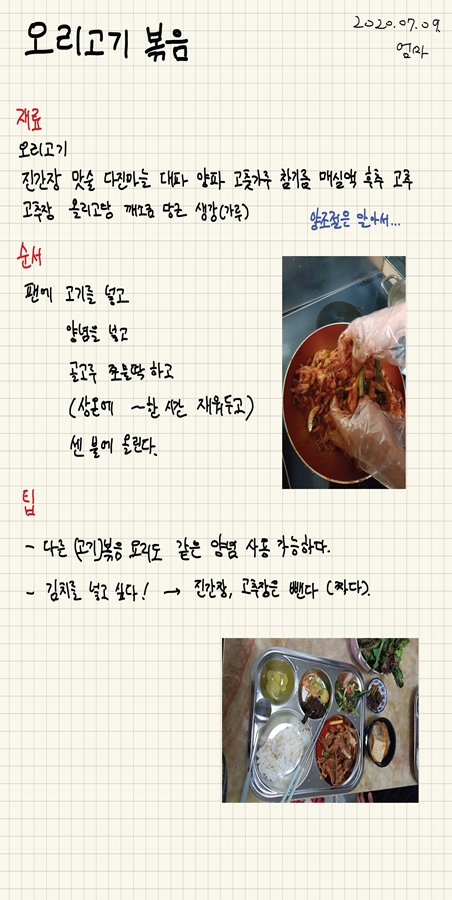 오리고기 볶음
2020.07.09.
엄마
재료
오리고기
진간장 맛술 다진마늘 대파 양파 고춧가루 참기름 매실액 후추 고추
고추장 올리고당 깨소금 당근 생강(가루)
양조절은 알아서...
순서
팬에 고기를 넣고
양념을 넣고
골고루 쪼물딱 하고
(상온에 ~한 시간 재워두고)
센 불에 올린다.
팁
- 다른 (고기)볶음 요리도 같은 양념 사용 가능하다.
- 김치를 넣고 싶다! → 진간장, 고추장은 뺀다 (짜다).